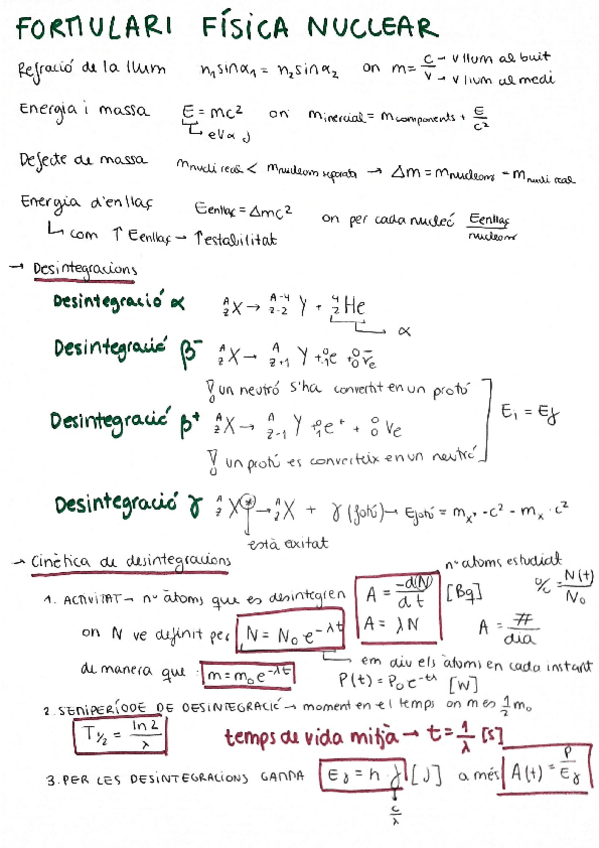 FORMULARI FÍSICA NUCLEAR
Refració de la llum n₁sinα₁ = n₂sinα₂ on m = c/v → v llum al buit → v llum al medi
Energia i massa E = mc² on m inercial = m components + E/c²
eV o J
Defecte de massa m nucli real < m nucleons separats → Δm = m nucleons - m nucli real
Energia d'enllaç E enllaç = Δmc² on per cada nucleó E enllaç/nucleons
↳ com ↑ E enllaç → ↑ estabilitat
→ Desintegracions
Desintegració α ᴬ_Z X → ᴬ⁻⁴_Z-2 Y + ⁴₂He
α
Desintegració β⁻ ᴬ_Z X → ᴬ_Z+1 Y + ⁰₋₁e + ⁰₀ν̄e
un neutró s'ha convertit en un protó
Desintegració β⁺ ᴬ_Z X → ᴬ_Z-1 Y + ⁰₁e⁺ + ⁰₀νe
E₁ = Eƒ
un protó es converteix en un neutró
Desintegració γ ᴬ_Z X* → ᴬ_Z X + γ (fotó) → E fotó = mₓ* · c² - mₓ · c²
està exitat
→ Cinètica de desintegracions
nº atoms estudiat
1. ACTIVITAT → nº àtoms que es desintegren A = -d(N)/dt [Bq] % = N(t)/N₀
A = λN A = #/dia
on N ve definit per N = N₀e^-λt
em diu els àtoms en cada instant
de manera que m = m₀e^-λt P(t) = P₀e^-tλ [W]
2. SEMIPERÍODE DE DESINTEGRACIÓ → moment en el temps on m es ½ m₀
T½ = ln2/λ temps de vida mitjà → t = 1/λ [s]
3. PER LES DESINTEGRACIONS GAMMA Eγ = h · f [J] a més A(t) = P/Eγ
c/λ